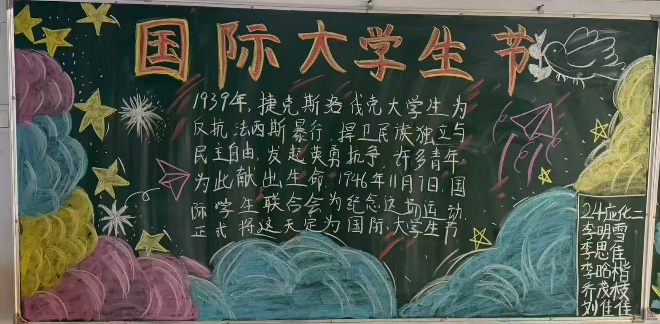 国际大学生节
1939年,捷克斯洛伐克大学生为
反抗法西斯暴行,捍卫民族独立与
民主自由,发起英勇抗争,许多青年
为此献出生命,1946年11月7日,国
际学生联合会为纪念这场运动,
正式将这天定为国际大学生节
24应化二
李明雪
李思佳
李晗楷
乔茂枝
刘佳佳